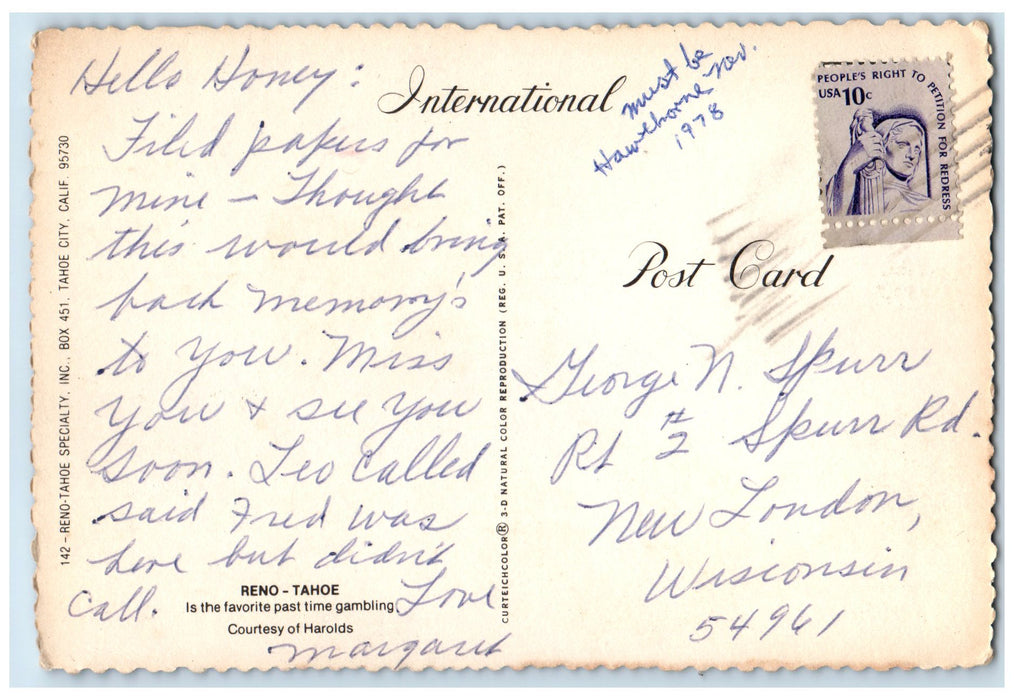 Hello Honey:
Filed papers for
mine – Thought
this would bring
back memory's
to you. Miss
you & see you
soon. Leo called
said Fred was
here but didn't
call.
Love
Margaret
RENO - TAHOE
Is the favorite past time gambling.
Courtesy of Harolds
142 – RENO-TAHOE SPECIALTY, INC., BOX 451, TAHOE CITY, CALIF. 95730
CURTEICHCOLOR® 3-D NATURAL COLOR REPRODUCTION (REG. U. S. A. PAT. OFF.)
International
Post Card
must be
Hawthorne Nev.
1978
PEOPLE'S RIGHT TO PETITION FOR REDRESS
USA 10c
George N. Spurr
Rt #2 Spurr Rd.
New London,
Wisconsin
54961